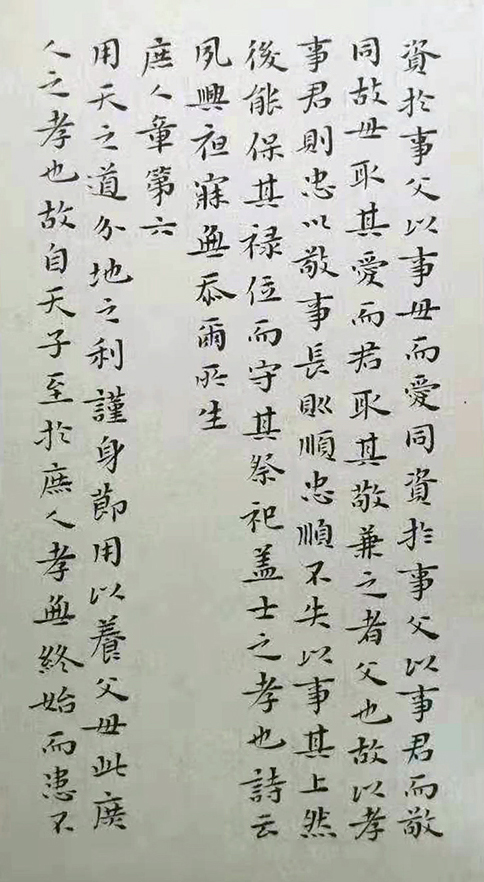 資於事父以事母而愛同資於事父以事君而敬
同故母取其愛而君取其敬兼之者父也故以孝
事君則忠以敬事長則順忠順不失以事其上然
後能保其祿位而守其祭祀盖士之孝也詩云
夙興夜寐無忝爾所生
庶人章第六
用天之道分地之利謹身節用以養父母此庶
人之孝也故自天子至於庶人孝無終始而患不